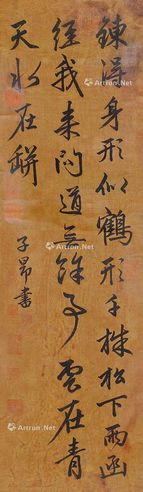 鍊得身形似鶴形千株松下兩函
經我来問道無餘事雲在青
天水在缾
子昂書
AtronArt.Net
AtronArt.Net
AtronArt.Net